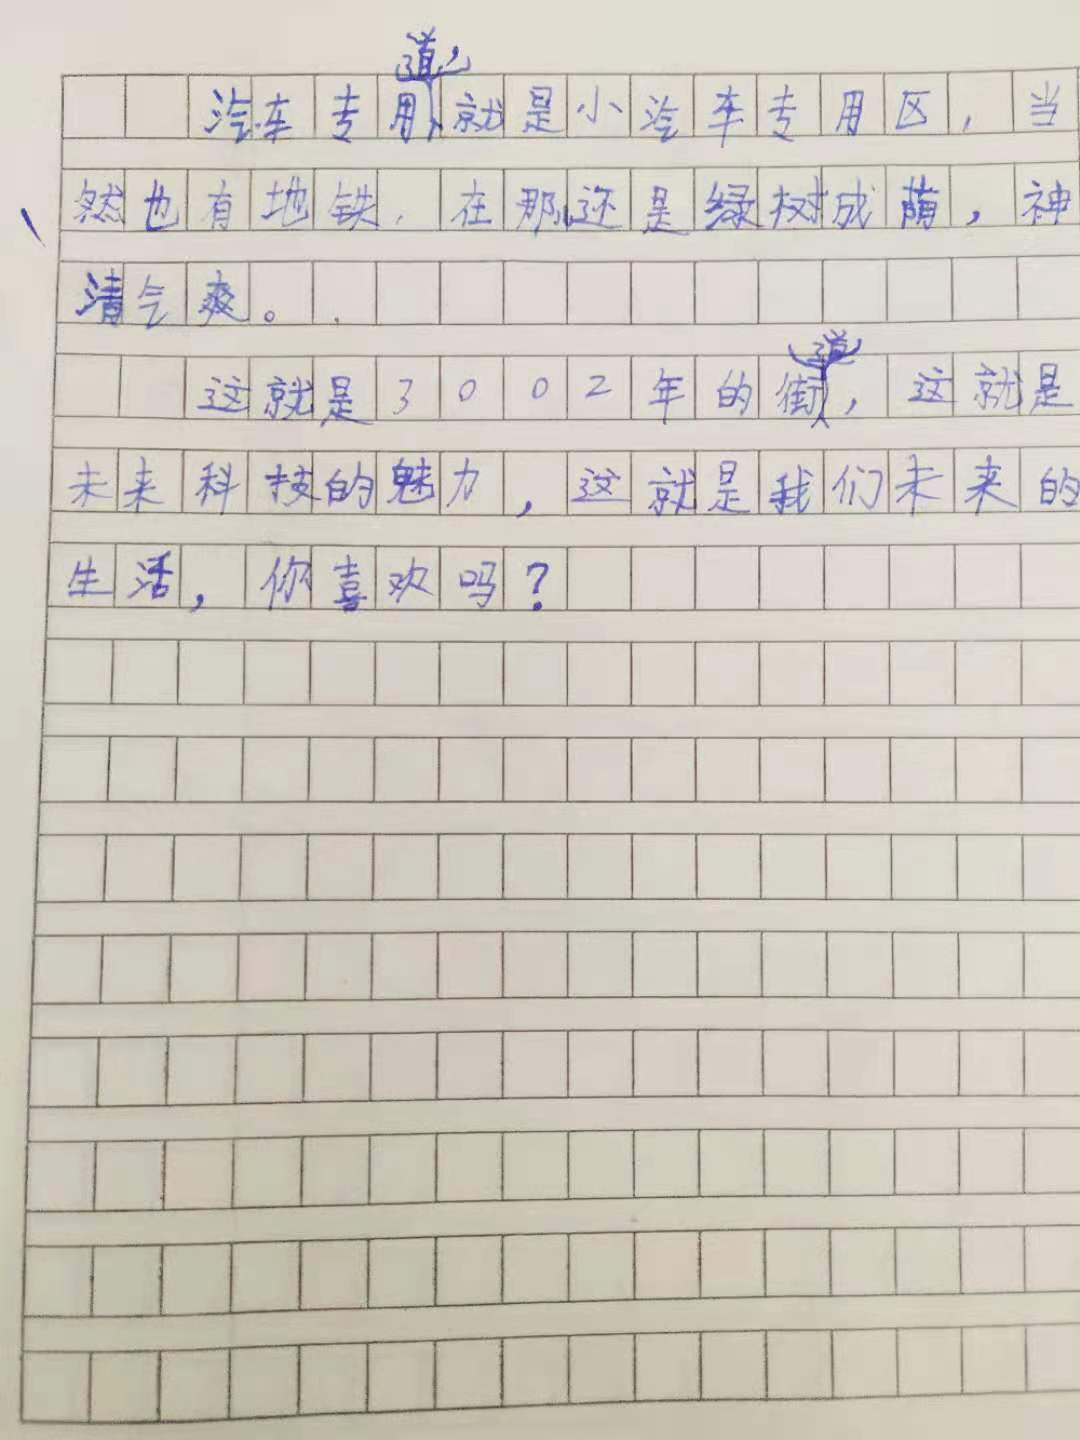 汽车专用道,就是小汽车专用区,当
然也有地铁,在那还是绿树成荫,神
清气爽。
这就是3002年的街道,这就是
未来科技的魅力,这就是我们未来的
生活,你喜欢吗?